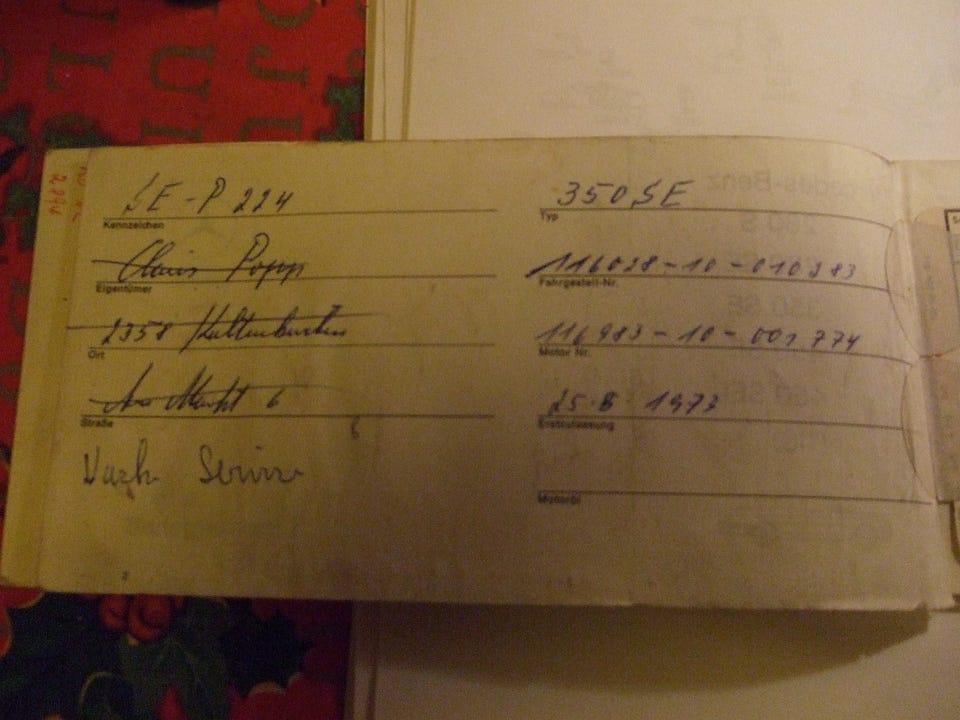 SE-P 224
Kennzeichen
Claus Popp
Eigentümer
2358 Kaltenkirchen
Ort
Am Markt 6
Straße
Nach
2
350 SE
Typ
116028-10-010283
Fahrgestell-Nr.
116983-10-001774
Motor Nr.
25.8 1973
Erstzulassung
Motoröl